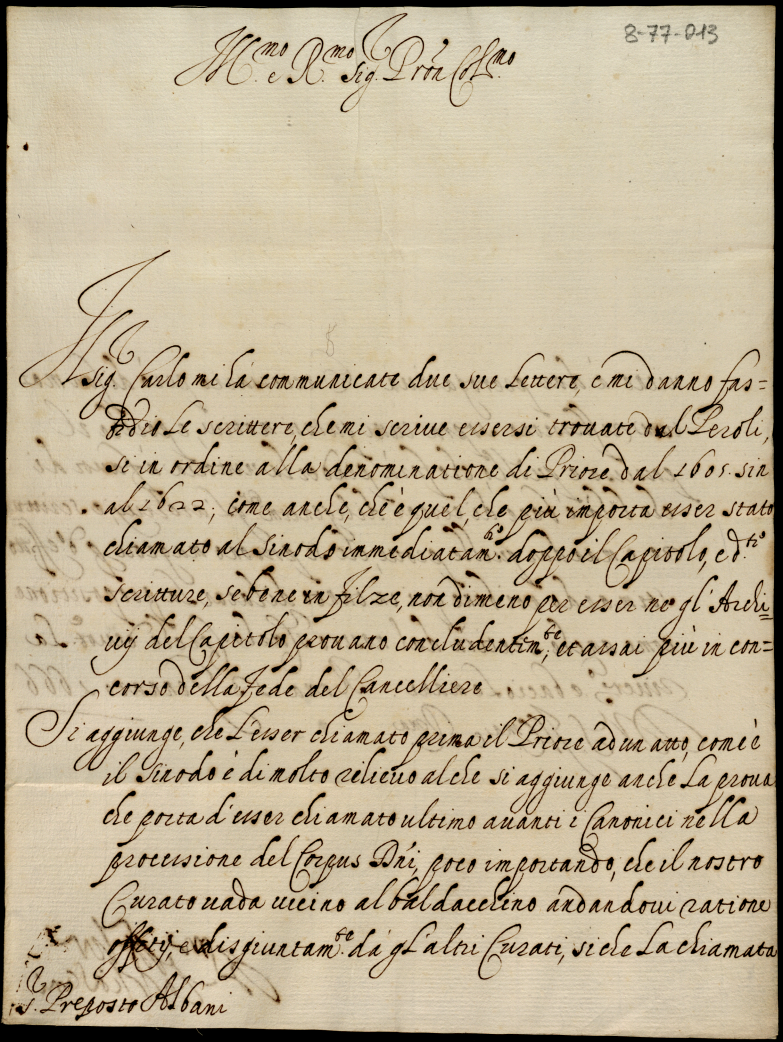 8-77-013
M.mo e R.mo Sig.r Pron Col.mo
Il Sig.r Carlo mi hà communicate due sue Lettere, e mi danno fas=
tidio Le scritture, che mi scrive essersi trouate dal Peroli,
si in ordine alla denominatione di Priore dal 1605. sin
al 1622; come anche, che è quel, che più importa esser stato
chiamato al Sinodo immediatam.te doppo il Capitolo, e d.te
scritture, se bene in filze, non dimeno per esser ne gl'Archi=
uij del Capitolo prouano concludentim.te, et assai più in con=
corso della fede del Cancelliere
Si aggiunge, che L'esser chiamato prima il Priore ad un atto, com'è
il Sinodo è di molto relieuo al che si aggiunge anche La proua
che porta d'esser chiamato ultimo auanti i Canonici nella
processione del Corpus Dñi, poco importando, che il nostro
Curato uada uicino al baldacchino andandoui ratione
officij, e disgiuntam.te dà gl'altri Curati, si che La chiamata
S.r Preposto Albani